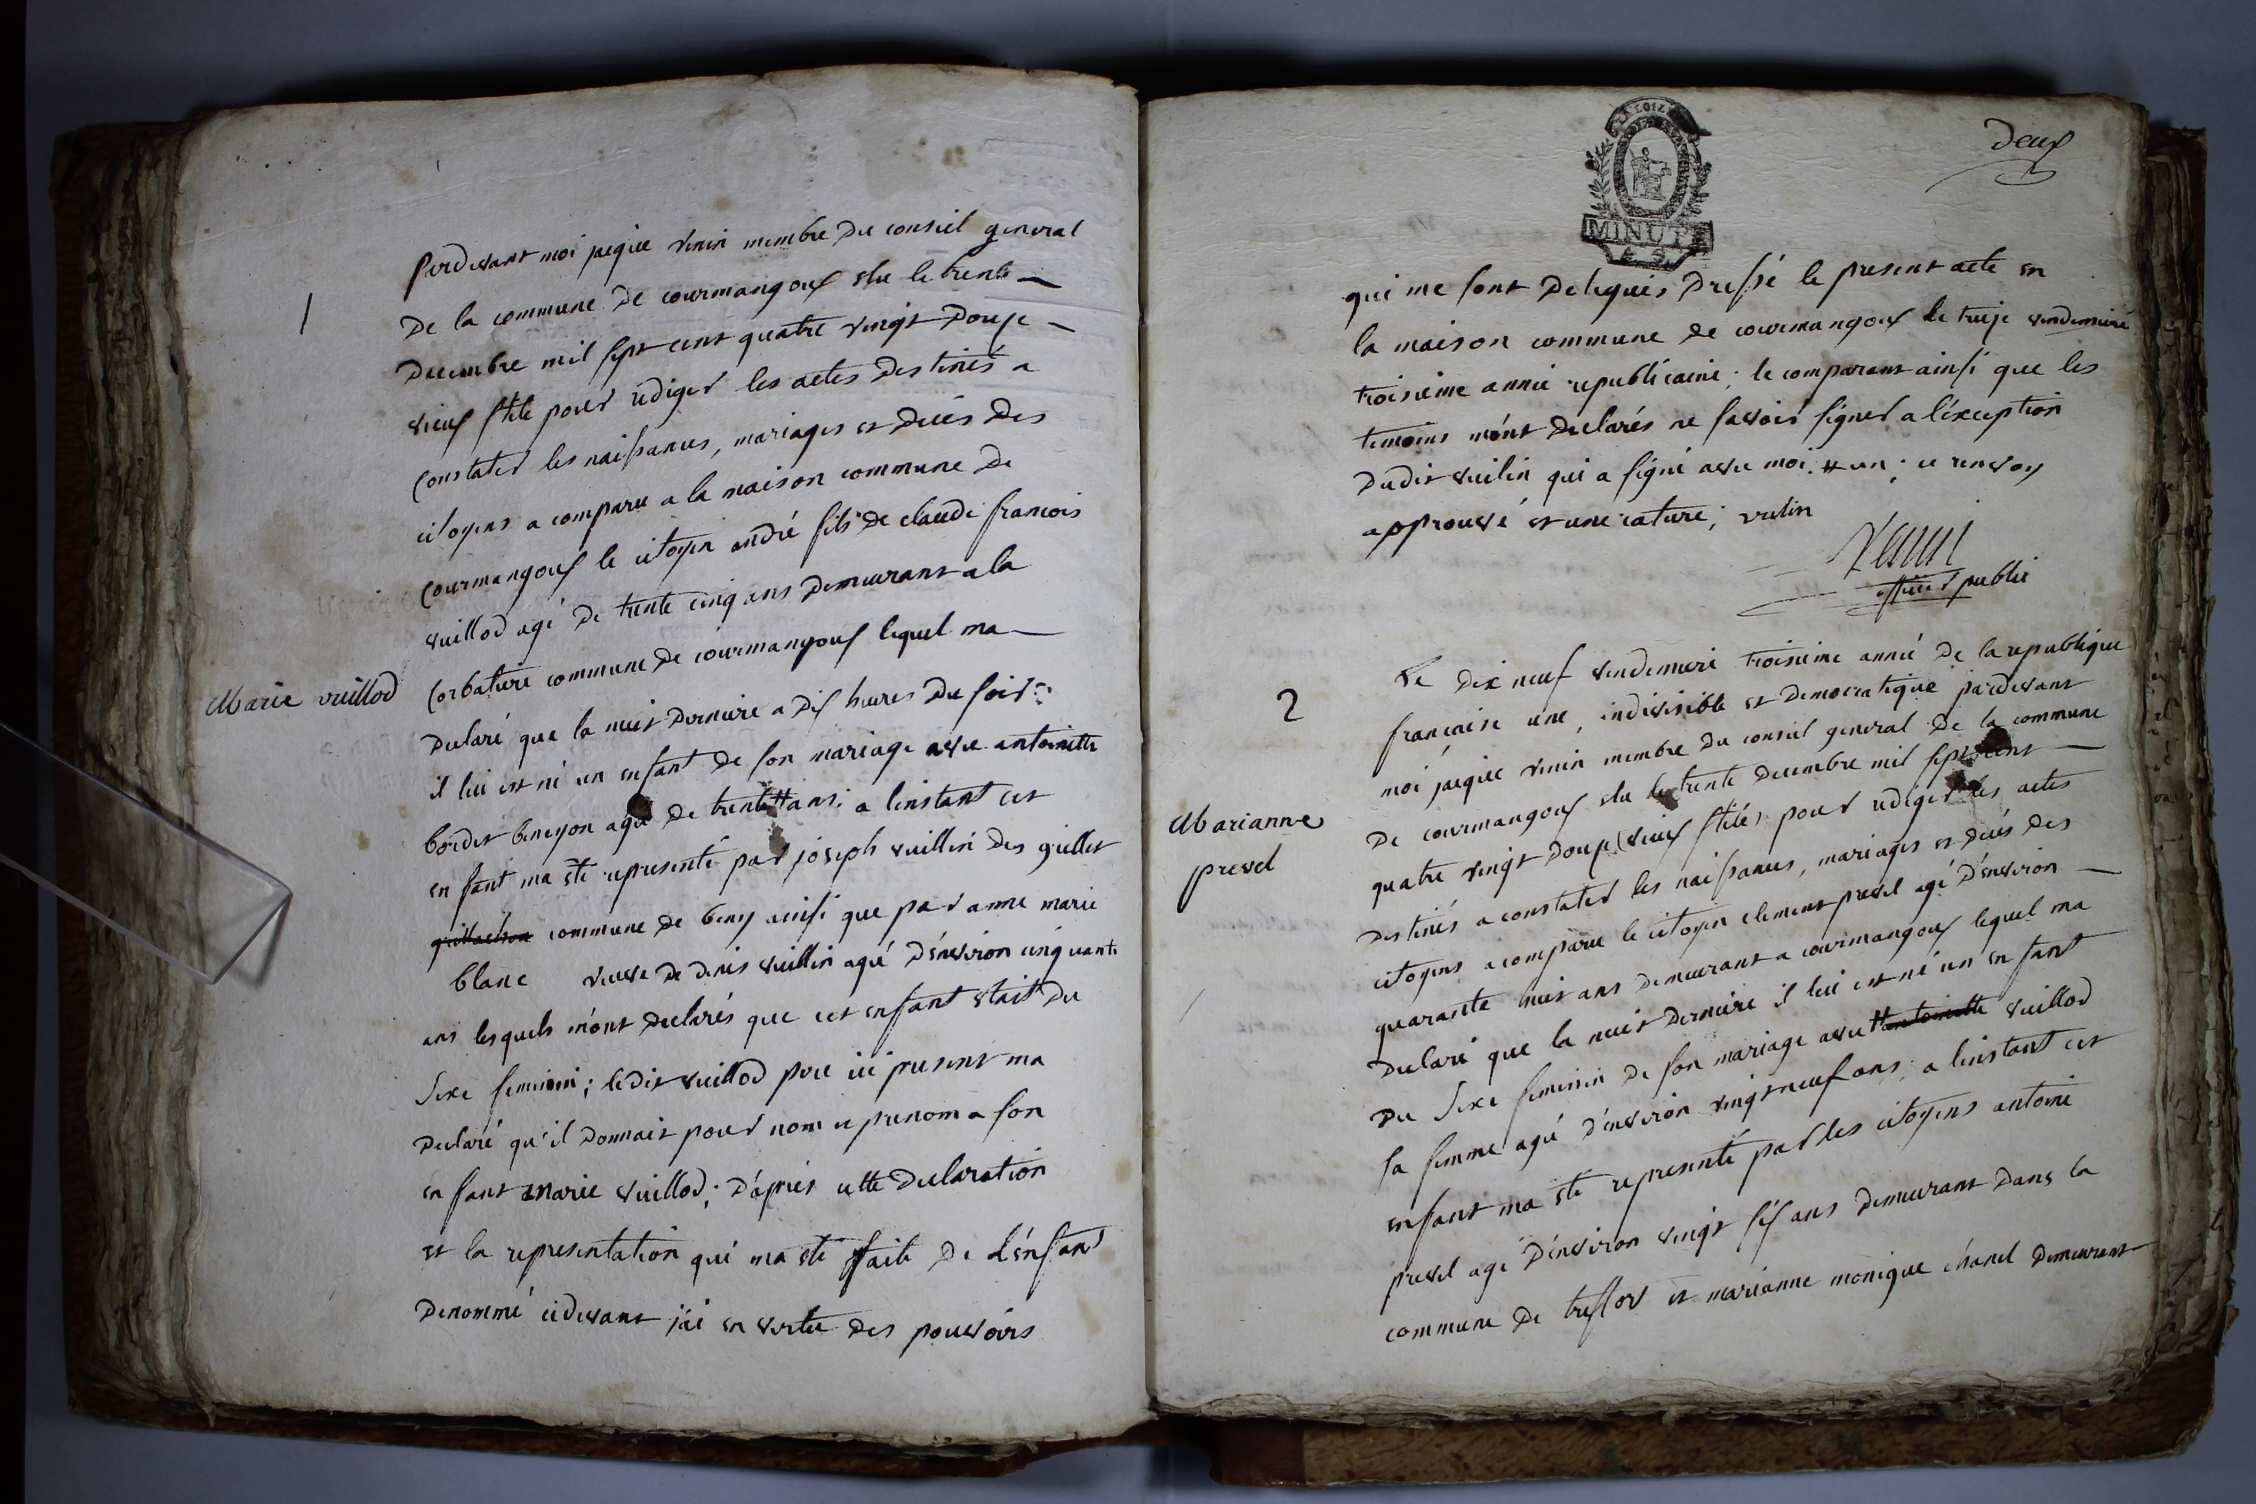 1
pardevant moi jaque venin membre du conseil general
de la commune de courmangoux elu le trente
decembre mil sept cent quatre vingt douze
vieux stile pour rediger les actes destinés a
constater les naissances, mariages et decés des
citoyens a comparu a la maison commune de
courmangoux le citoyen andré fils de claude francois
vuillod agé de trente cinq ans demeurant a la
Marie vuillod
corbatiere commune de courmangoux lequel ma
declaré que la nuit derniere a dix heures du soir
il lui est né un enfant de son mariage avec antoinette
bordet beneyon agée de trente # ans; a linstant cet
enfant ma été representé par joseph vuillin des
commune de beny ainsi que par anne marie
blanc veuve de denis vuillin agée d'environ cinquante
ans lesquels m'ont declarés que cet enfant etait du
sexe feminin; ledit vuillod pere ici present ma
declaré qu'il donnait pour nom et prenom a son
enfant marie vuillod; d'apries cette declaration
et la representation qui ma été faite de l'énfant
denommé cidevant j'ai en vertu des pouvoirs
deux
MINUTE
qui me sont delegués dressé le present acte en
la maison commune de courmangoux le treize vendemiere
troisieme année republicaine; le comparant ainsi que les
temoins m'ont declarés ne savoir signer a l'éxception
dudit vuilin qui a signé avec moi. # un; ce renvoy
approuvé et une rature; vulin
Venin
officier public
2
Le dix neuf vendemiere troisieme année de la republique
française une, indivisible et democratique pardevant
moi jaque venin membre du conseil general de la commune
de courmangoux elu le trente decembre mil sept cent
quatre vingt douze (vieux stile) pour rediger les actes
Marianne
prevel
destinés a constater les naissances, mariages et decés des
citoyens a comparu le citoyen clement prevel agé d'environ
quarante huit ans demeurant a courmangoux lequel ma
declaré que la nuit derniere il lui est né un enfant
du sexe feminin de son mariage avec # antoinette vuillod
sa femme agée d'environ vingt neuf ans; a linstant cet
enfant ma été representé par les citoyens antoine
prevel agé d'environ vingt six ans demeurant dans la
commune de treffort et marianne monique chanel demeurant